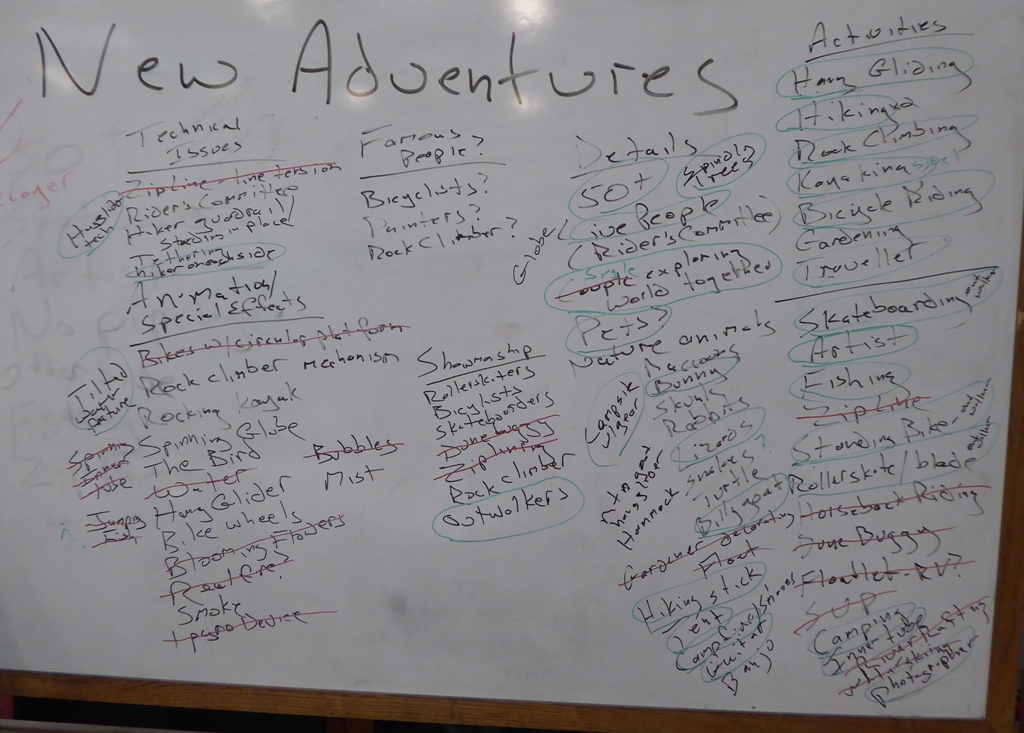 New Adventures
Technical
Issues
Zipline - line tension
Rider's Committee
Hiker guardrail/
standing in place
Tethering
hiker on backside
Animation/
Special Effects
Bikes w/ circular platform
Rock climber mechanism
Rocking Kayak
Spinning Globe
The Bird
Water
Hang Glider
Bike wheels
Blooming Flowers
Real fire?
Smoke
Device
Bubbles
Mist
Hangglider
tech
Tilted
Spinning
Inner
Tube
Jumping
Fish
Famous
People?
Bicyclists?
Painters?
Rock Climber?
Showmanship
Rollerskaters
Bicyclists
Skateboarders
Dune buggy
Ziplining
Rock climber
Outwalkers
Details
50+
Spindly
Trees
Live People
(Rider's Committee)
Globe
Single
Couple exploring
world together
Pets?
Nature animals
Raccoons
Bunny
Skunk
Rabbits
Lizards
Snakes?
Turtle
Billygoat
Hammock
Gardener decorating
Float
Hiking stick
Tent
Campfire/Smores
Guitar
Banjo
Activities
Hang Gliding
Hiking x2
Rock Climbing
Kayaking
Bicycle Riding
Gardening
Traveller
Skateboarding outwalker
Artist
Fishing
Zipline
Standing Biker outwalker
Rollerskate/blade outwalker
Horseback Riding
Dune Buggy
Floatlet - RV?
SUP
Camping
Innertube
River Rafting
Photographer